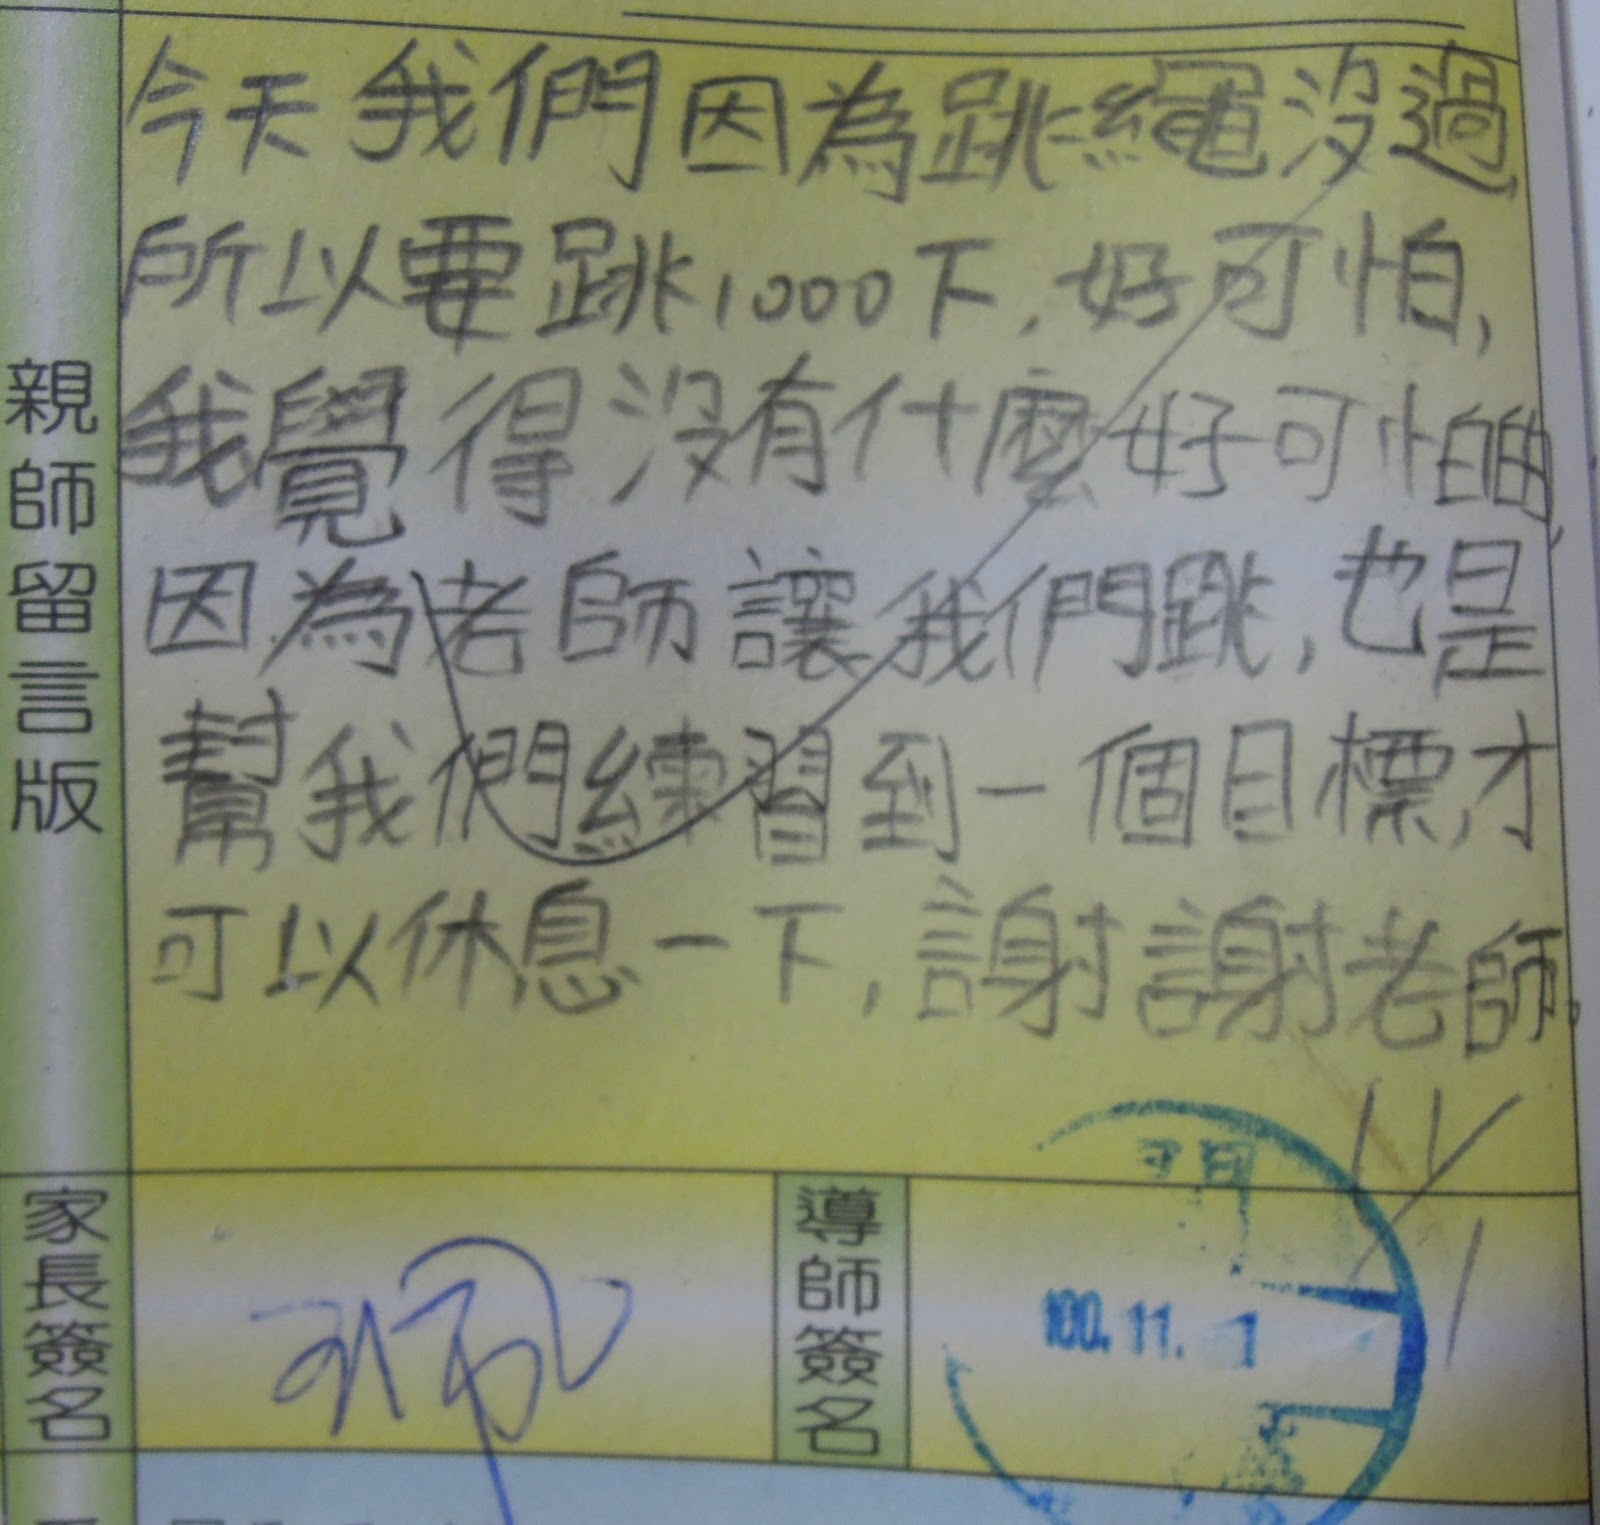 今天我們因為跳繩沒過,
所以要跳1000下,好可怕,
我覺得沒有什麼好可怕的,
因為老師讓我們跳,也是
幫我們練習到一個目標,才
可以休息一下,謝謝老師。
親師留言版
家長簽名
導師簽名
100.11.1